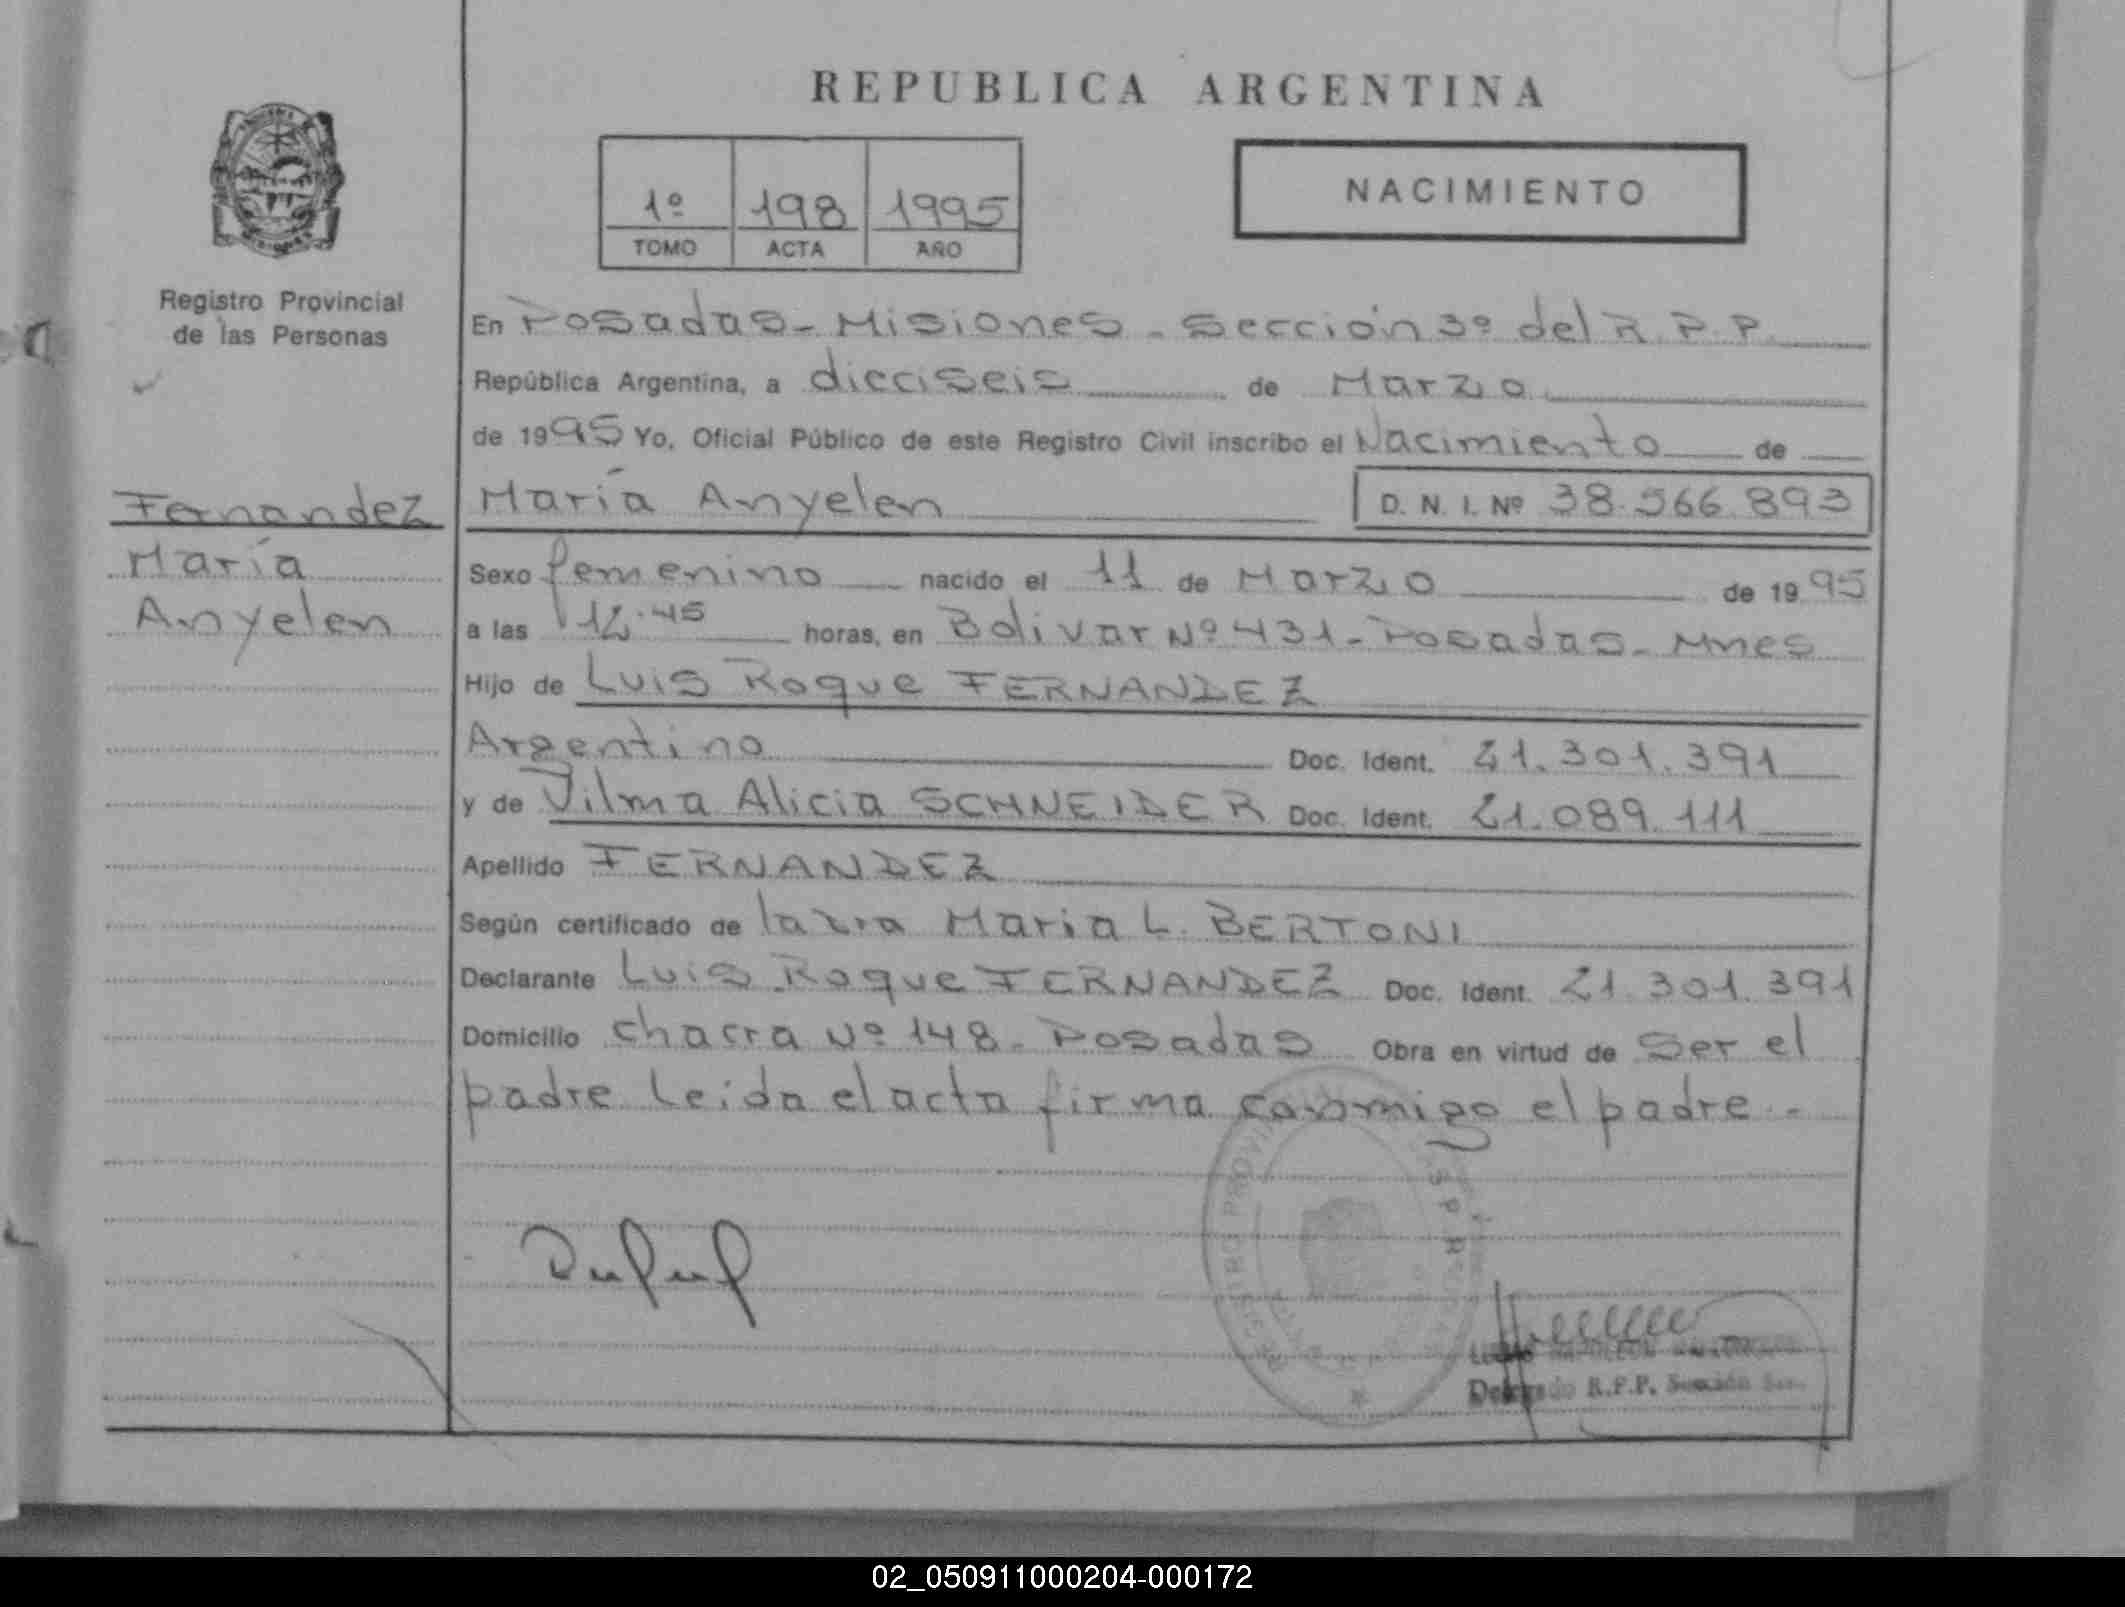 REPUBLICA ARGENTINA
1º 198 1995
TOMO ACTA AÑO
NACIMIENTO
Registro Provincial
de las Personas
En Posadas - Misiones - Sección 3º del R.P.P.
República Argentina, a dieciseis de Marzo
de 1995 Yo, Oficial Público de este Registro Civil inscribo el Nacimiento de
Fernandez
María
Anyelen
María Anyelen D. N. I. Nº 38.566.893
Sexo femenino nacido el 11 de Marzo de 1995
a las 12.45 horas, en Bolivar Nº 431 - Posadas - Mnes
Hijo de Luis Roque FERNANDEZ
Argentino Doc. Ident. 21.301.391
y de Vilma Alicia SCHNEIDER Doc. Ident. 21.089.111
Apellido FERNANDEZ
Según certificado de la Dra Maria L. BERTONI
Declarante Luis Roque FERNANDEZ Doc. Ident. 21.301.391
Domicilio Chacra Nº 148 - Posadas Obra en virtud de Ser el
padre Leida el acta firma conmigo el padre -
REGISTRO PROVINCIAL
NAPOLEON
Delegado R.P.P. Sección
02_050911000204-000172